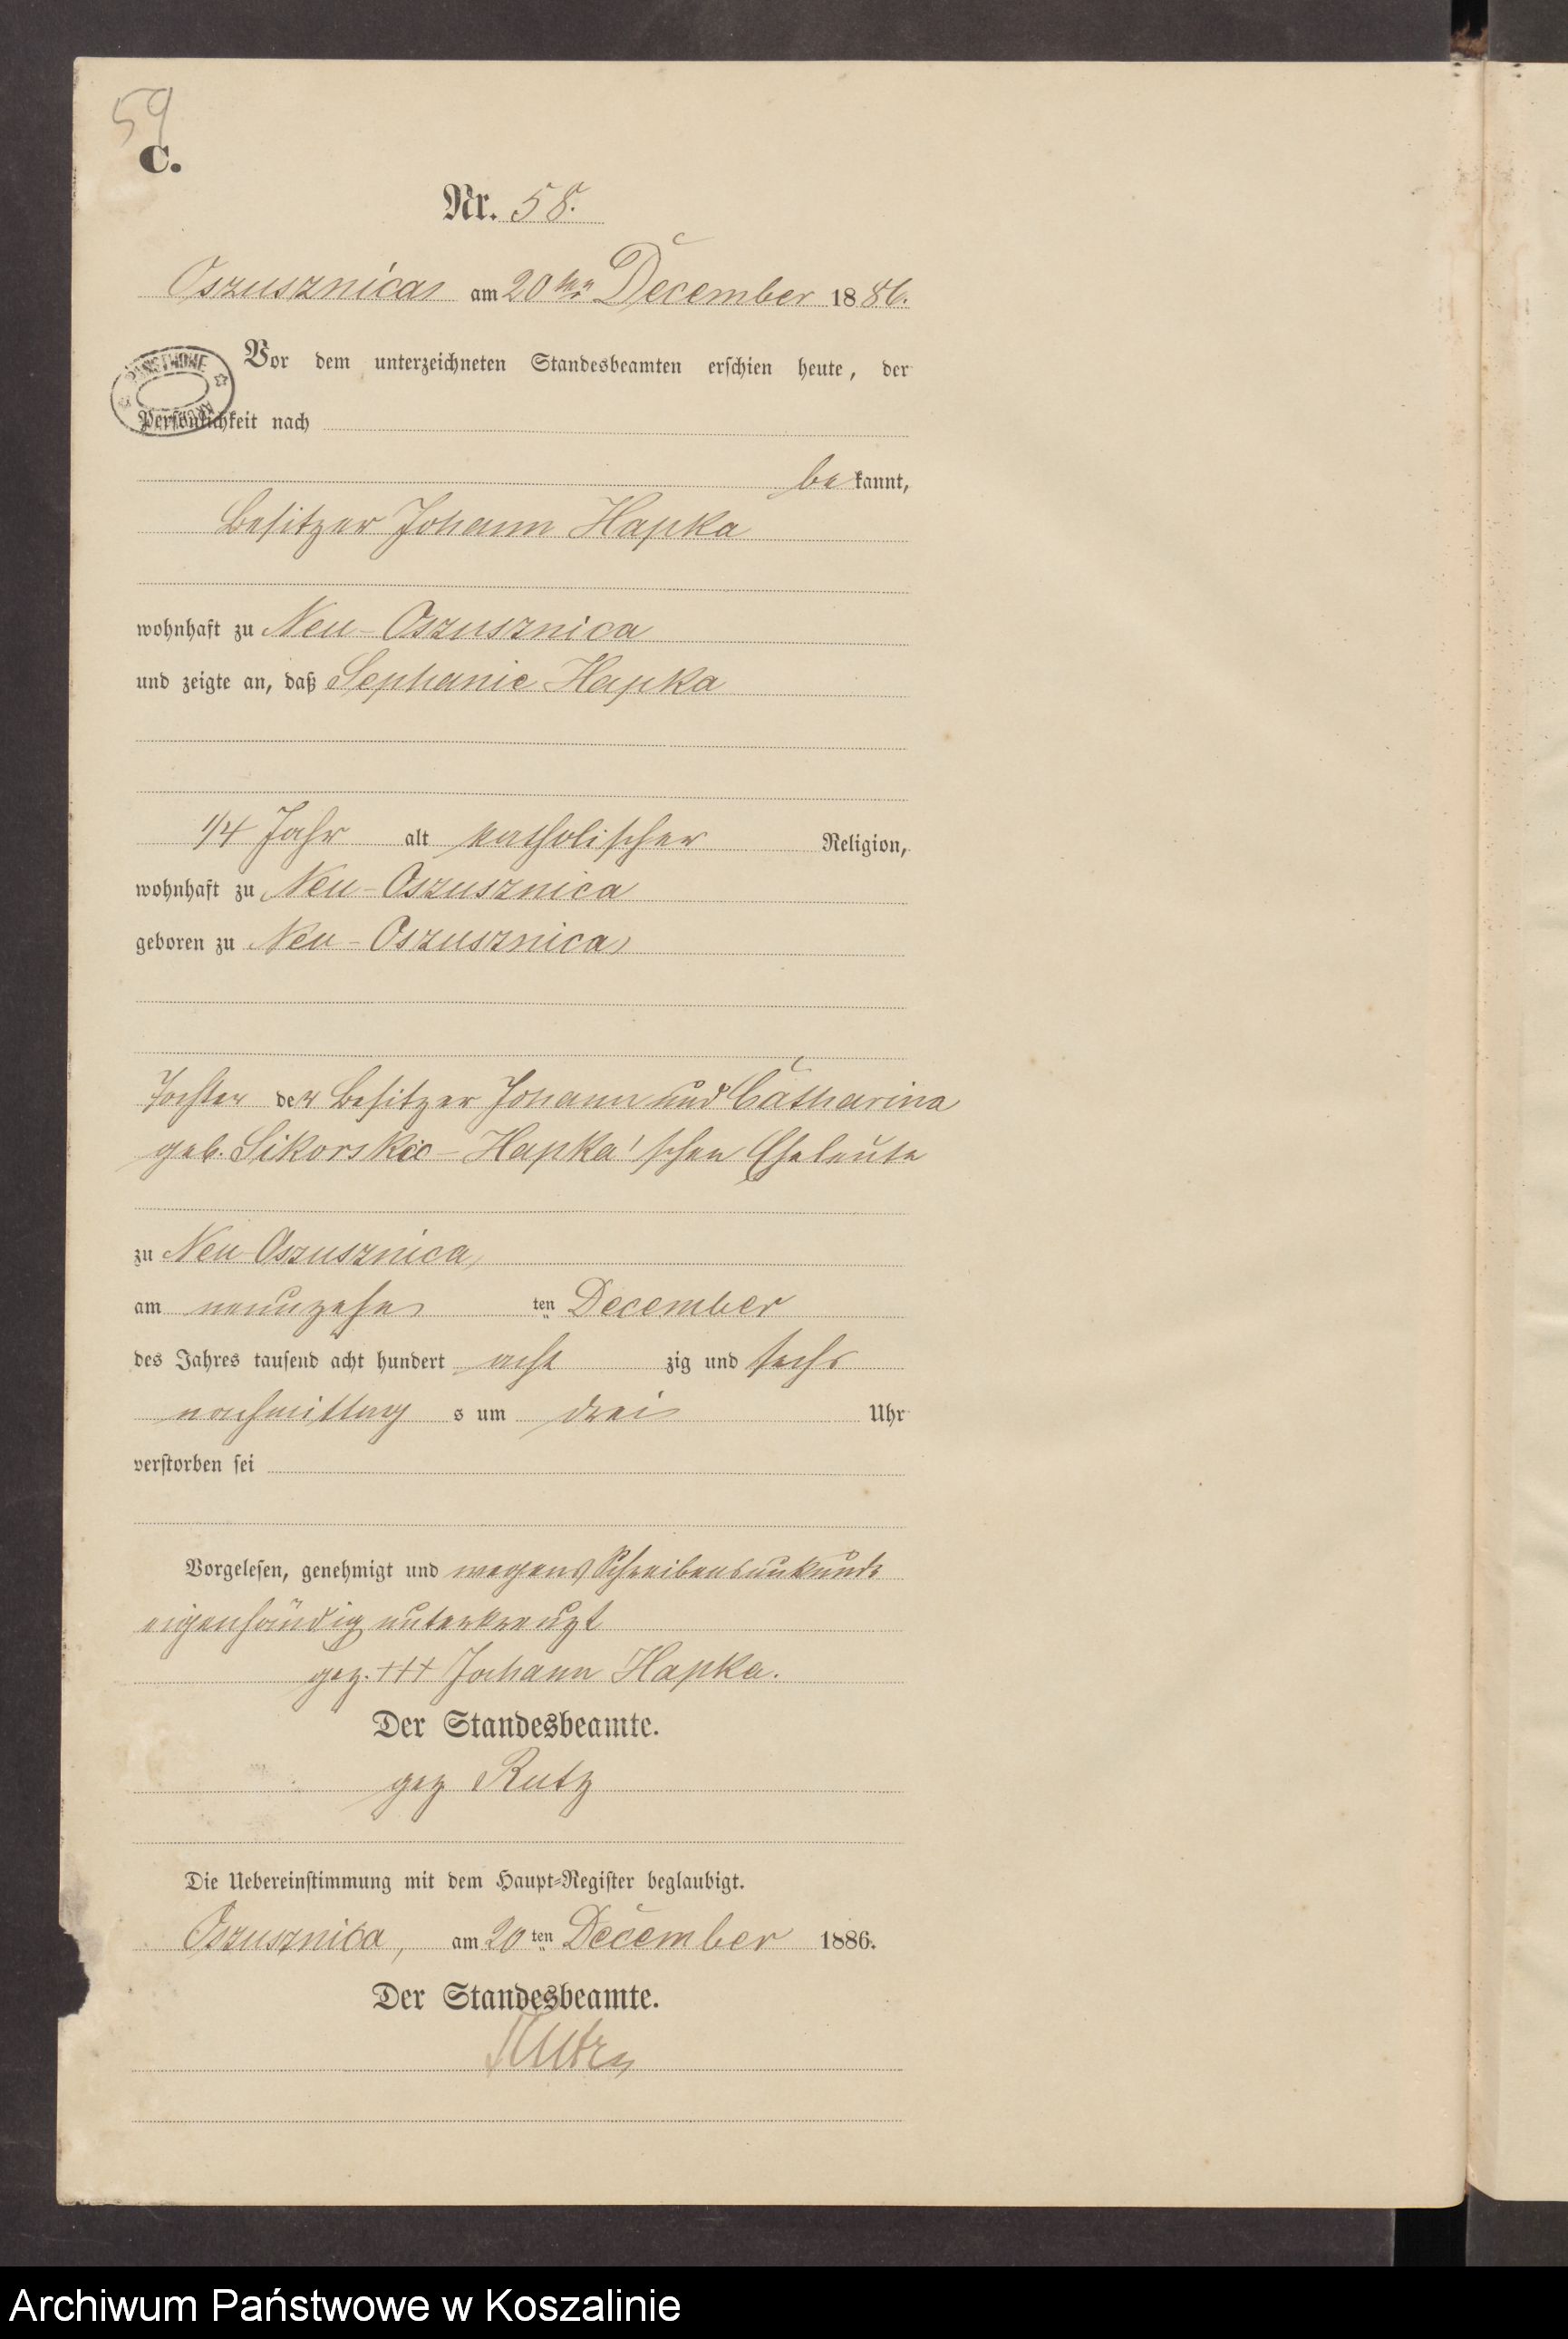 59
C.
Nr. 58.
Oszusznica am 20ten December 1886.
Vor dem unterzeichneten Standesbeamten erschien heute, der
Persönlichkeit nach
bekannt,
Besitzer Johann Hapka
wohnhaft zu Neu-Oszusznica
und zeigte an, daß Sephanie Hapka
1/4 Jahr alt katholischer Religion,
wohnhaft zu Neu-Oszusznica
geboren zu Neu-Oszusznica
Tochter der Besitzer Johann und Catharina
geb. Sikorskie-Hapka'schen Eheleute
zu Neu Oszusznica,
am neunzehn ten December
des Jahres tausend acht hundert acht zig und sechs
nachmittag s um drei Uhr
verstorben sei
Vorgelesen, genehmigt und wegen Schreibensunkunde
eigenhändig unterkreuzt
gez. +++ Johann Hapka.
Der Standesbeamte.
gez Rutz
Die Uebereinstimmung mit dem Haupt-Register beglaubigt.
Oszusznica, am 20ten December 1886.
Der Standesbeamte.
Rutz
Archiwum Państwowe w Koszalinie